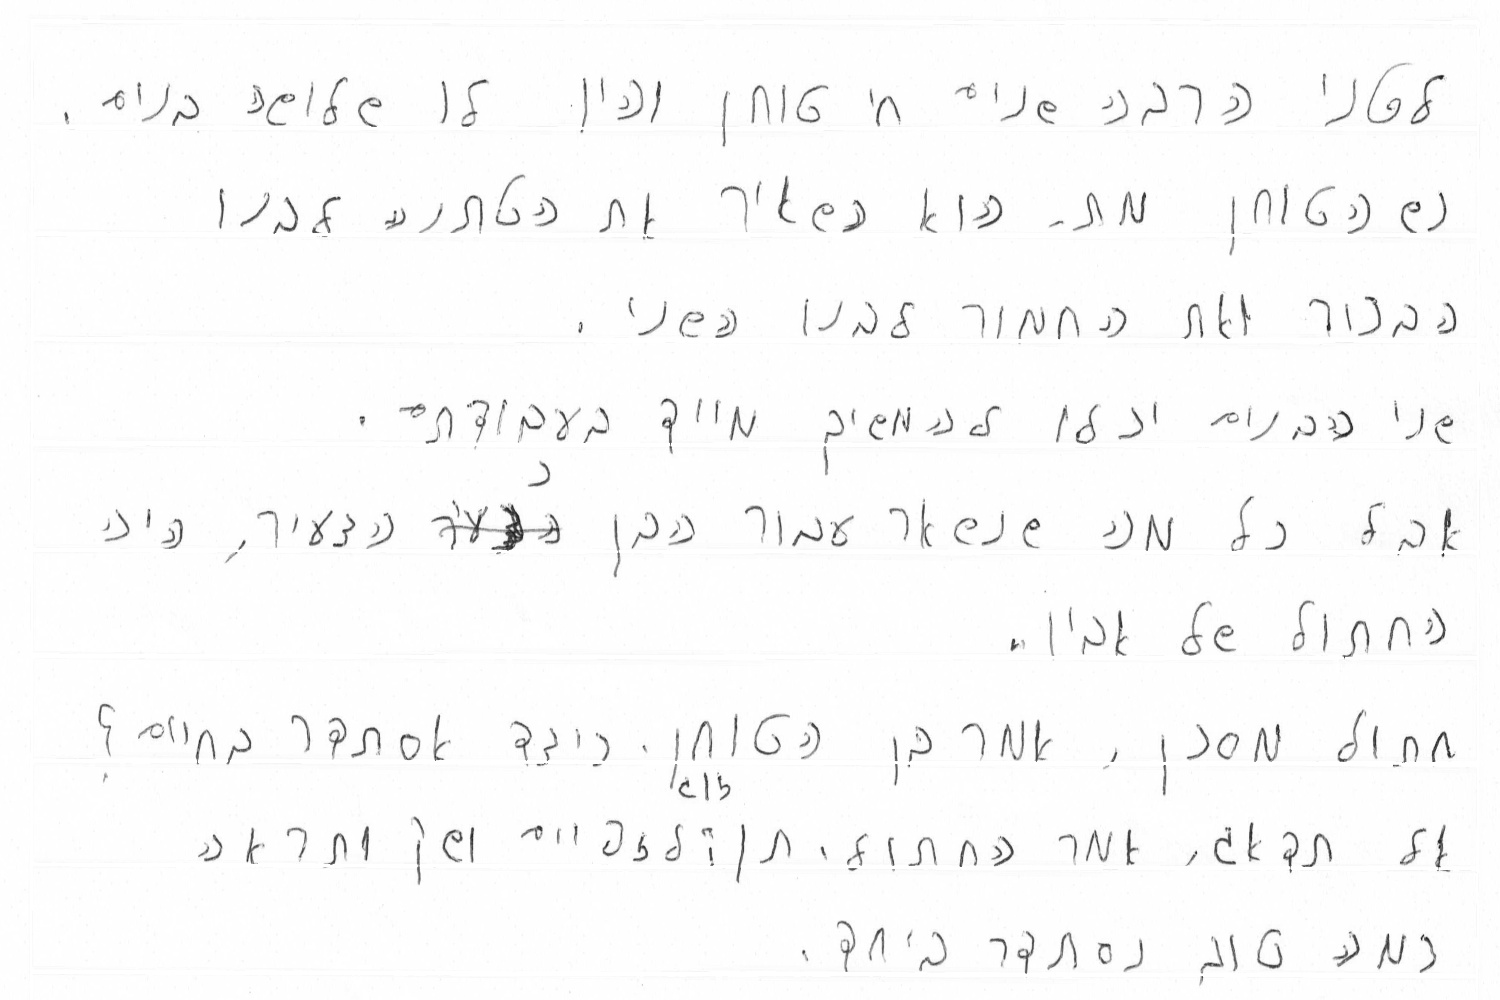 לפני הרבה שנים חי טוחן והיו לו שלושה בנים.
כש הטוחן מת. הוא השאיר את הטחנה לבנו
הבכור ואת החמור לבנו השני.
שני הבנים יכלו להמשיך מייד בעבודתם.
אבל כל מה שנשאר עבור הבן הצעיר, היה
החתול של אביו..
חתול מסכן, אמר בן הטוחן. כיצד אסתדר בחיים?
אל תדאג, אמר החתול. תן לי זוג מגפיים ושק ותראה
כמה טוב נסתדר ביחד.